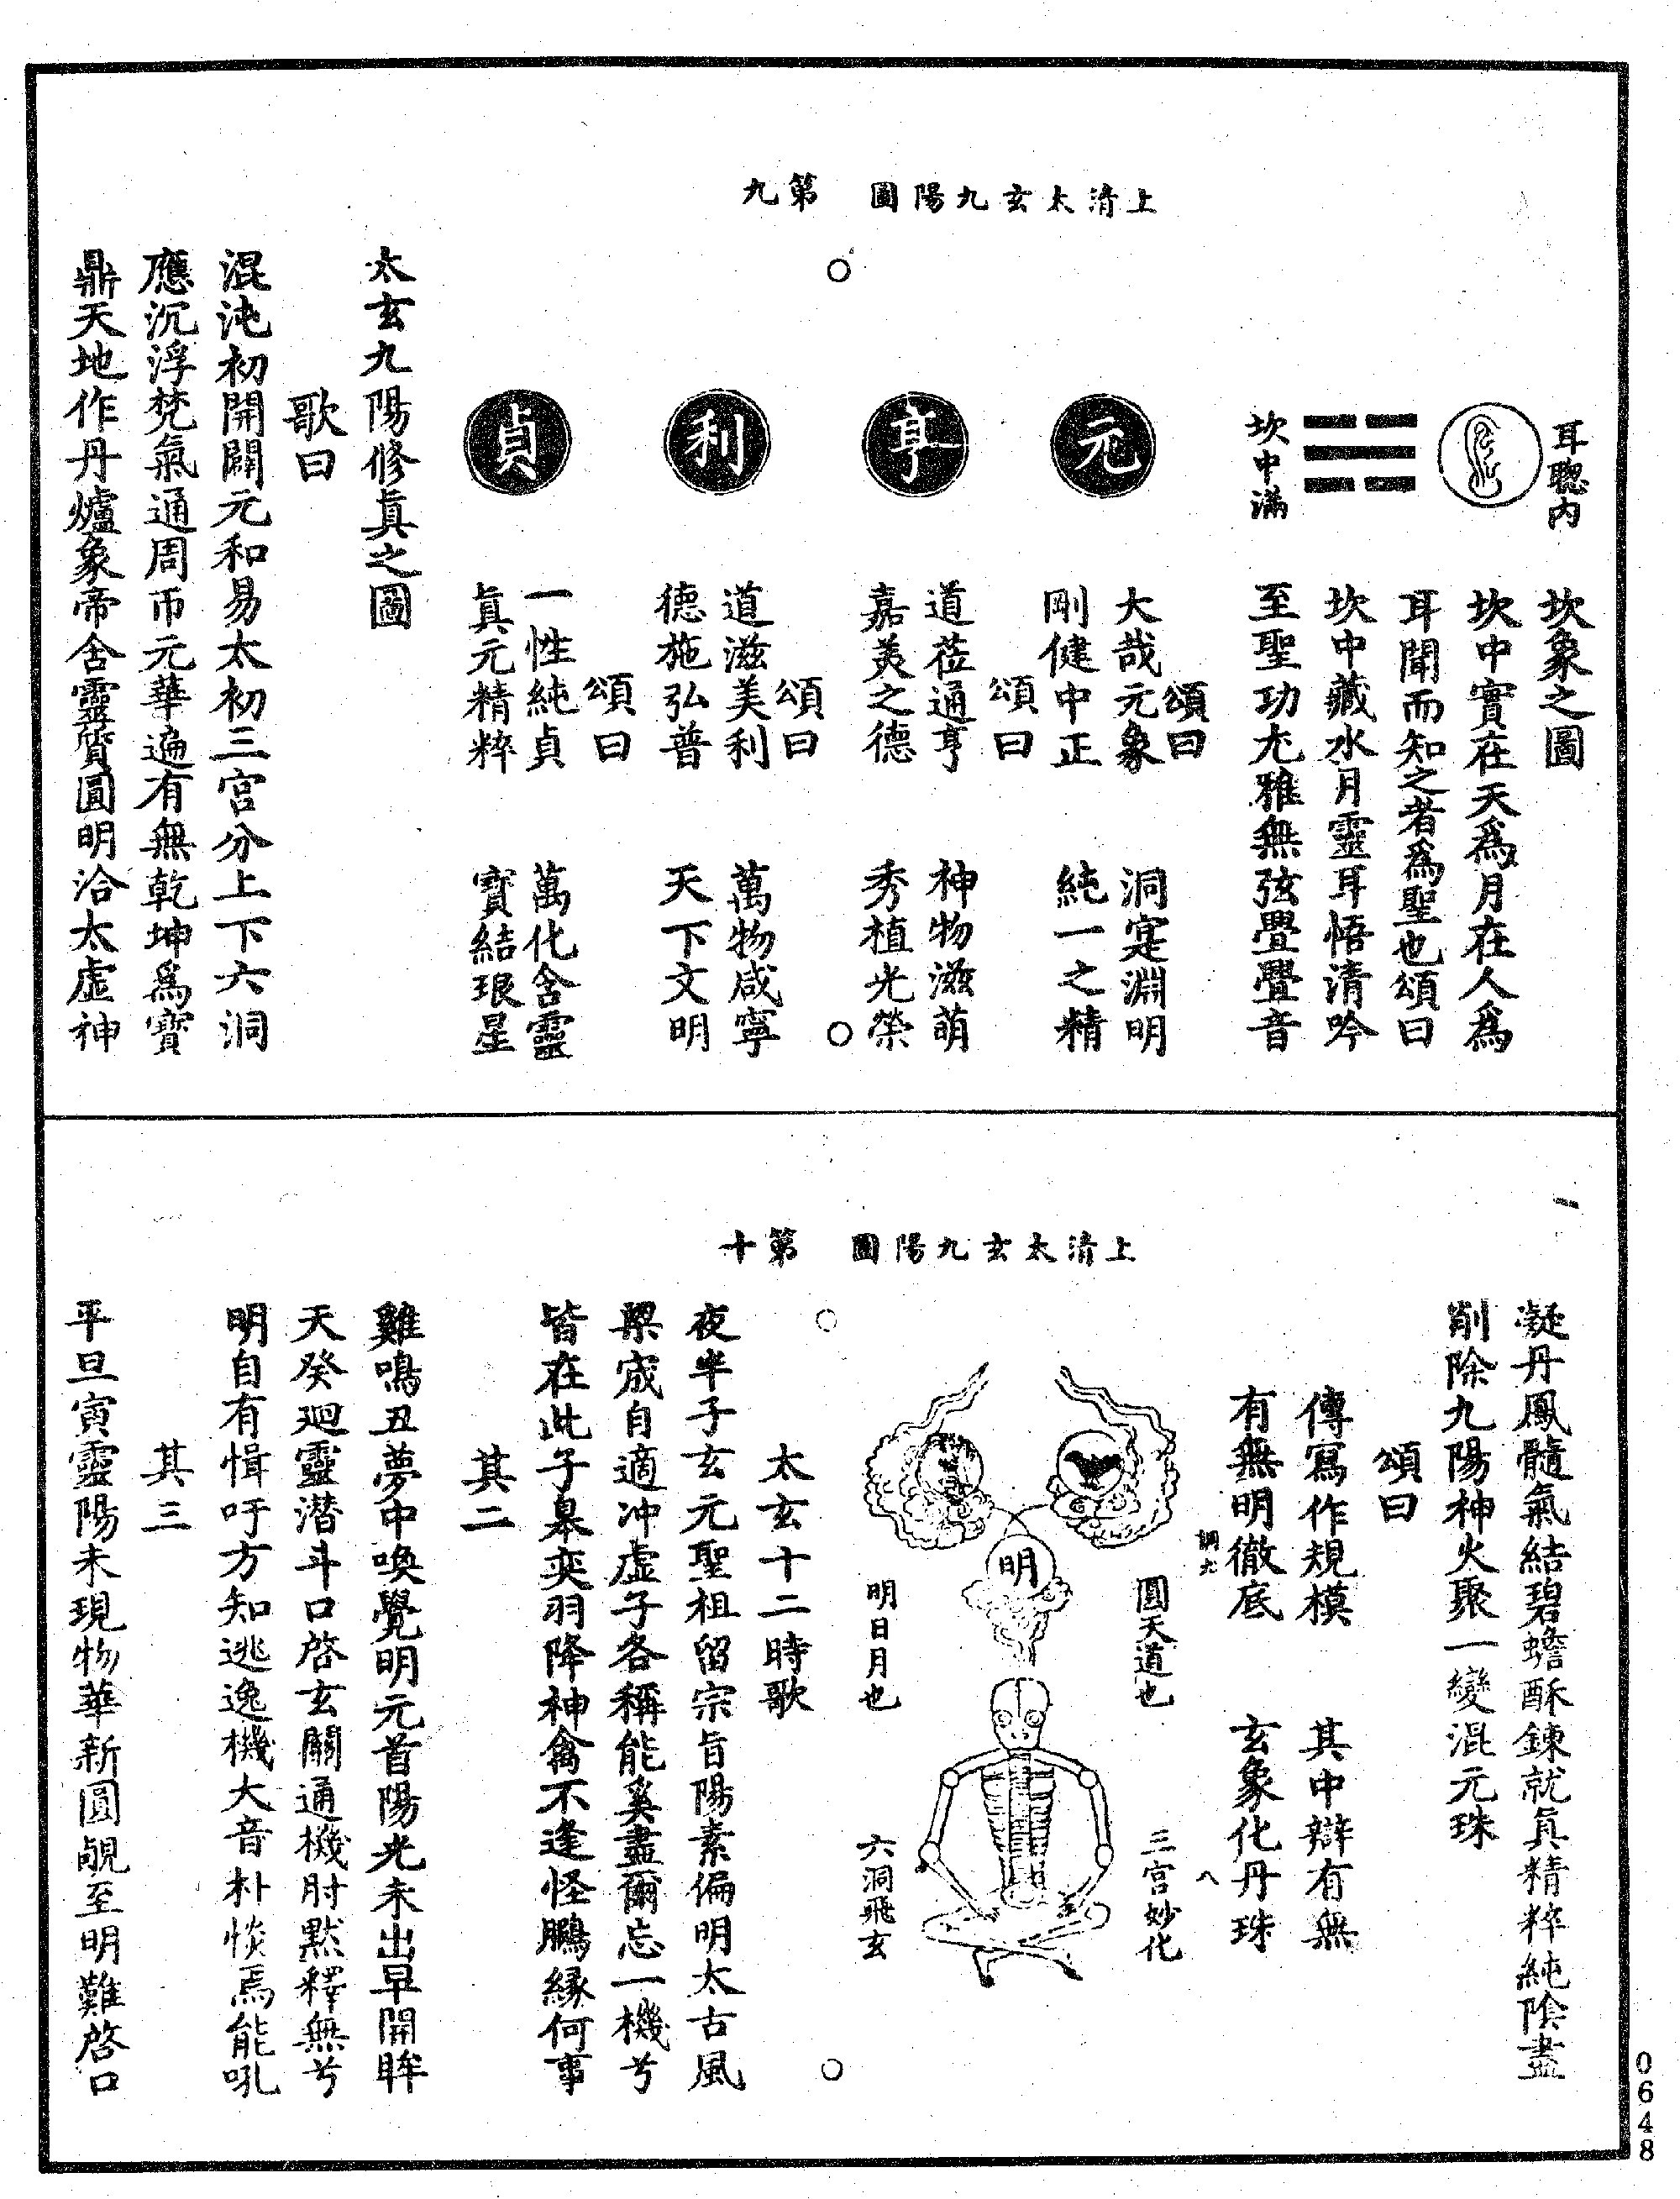 上清太玄九陽圖　第九
坎象之圖
耳聰内
坎中滿
坎中實在天爲月在人爲
耳聞而知之者爲聖也頌曰
坎中藏水月靈耳悟清吟
至聖功尢雅無弦疊疊音
元
頌曰
大哉元象　洞寔淵明
剛健中正　純一之精
亨
頌曰
道莅通亨　神物滋萌
嘉美之德　秀植光榮
利
頌曰
道滋美利　萬物咸寧
德施弘普　天下文明
貞
頌曰
一性純貞　萬化含靈
眞元精粹　寳結珢星
太玄九陽修眞之圖
歌曰
混沌初開闢元和易太初三宫分上下六洞
應沉浮梵氣通周帀元華遍有無乾坤爲寳
鼎天地作丹爐象帝含靈質圓明洽太虚神
上清太玄九陽圖　第十
凝丹鳳髓氣結碧蟾酥鍊就眞精粹純陰盡
削除九陽神火聚一變混元珠
頌曰
傳寫作規模　其中辯有無
有無明徹底　玄象化丹珠
調九　八
圓天道也
三宫妙化
明
明日月也
六洞飛玄
太玄十二時歌
夜半子玄元聖祖留宗旨陽素偏明太古風
槩宬自適冲虚子各稱能奚盡爾忘一機兮
皆在此子皋奕羽降神禽不逢怪鵬緣何事
其二
雞鳴丑夢中喚覺明元首陽光未出早開眸
天癸廻靈潛斗口啓玄關通機肘默釋無兮
明自有惟吁方知逃逸機大音朴惔焉能吼
其三
平旦寅靈陽未現物華新圓覷至明難啓口
0648